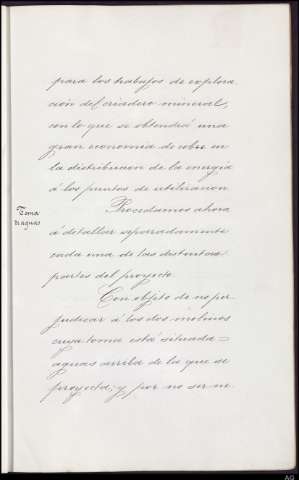 para los trabajos de explora
ción del criadero mineral,
con lo que se obtendrá una
gran economia de cobre en
la distribucion de la energia
á los puntos de utilizacion
Procedamos ahora
Toma
de aguas
á detallar separadamente
cada una de las distintas
partes del proyecto.
Con objeto de no per
judicar á los dos molinos
cuya toma está situada
aguas arriba de la que se
proyecta; y por no ser ne